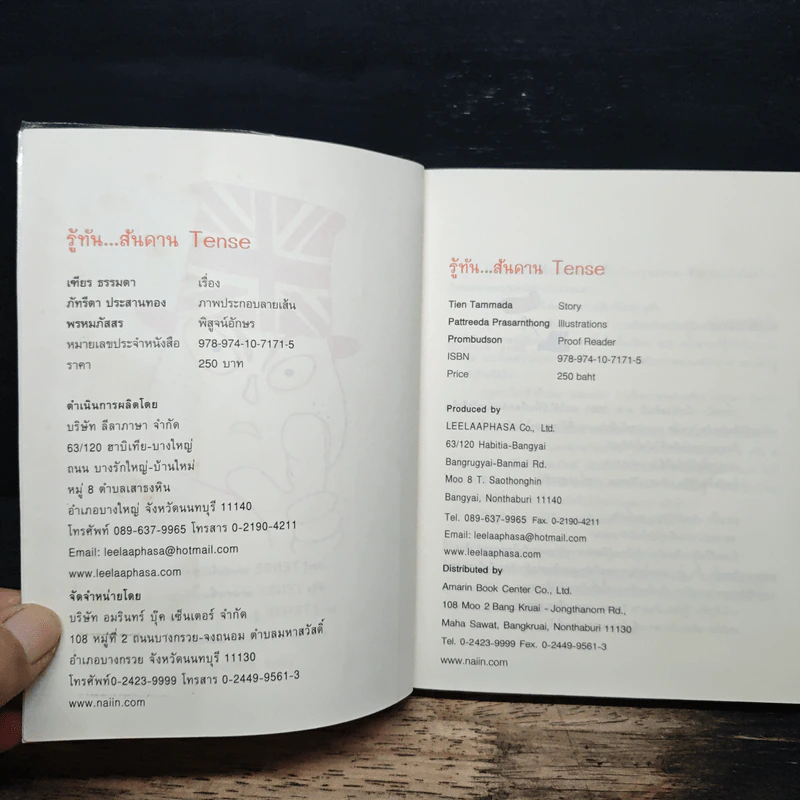 รู้ทัน...สันดาน Tense
เฑียร ธรรมดา เรื่อง
ภัทรีดา ประสานทอง ภาพประกอบลายเส้น
พรหมภัสสร พิสูจน์อักษร
หมายเลขประจำหนังสือ 978-974-10-7171-5
ราคา 250 บาท
ดำเนินการผลิตโดย
บริษัท ลีลาภาษา จำกัด
63/120 ฮาบิเทีย-บางใหญ่
ถนน บางรักใหญ่-บ้านใหม่
หมู่ 8 ตำบลเสาธงหิน
อำเภอบางใหญ่ จังหวัดนนทบุรี 11140
โทรศัพท์ 089-637-9965 โทรสาร 0-2190-4211
Email: leelaaphasa@hotmail.com
www.leelaaphasa.com
จัดจำหน่ายโดย
บริษัท อมรินทร์ บุ๊ค เซ็นเตอร์ จำกัด
108 หมู่ที่ 2 ถนนบางกรวย-จงถนอม ตำบลมหาสวัสดิ์
อำเภอบางกรวย จังหวัดนนทบุรี 11130
โทรศัพท์0-2423-9999 โทรสาร 0-2449-9561-3
www.naiin.com
รู้ทัน...สันดาน Tense
Tien Tammada Story
Pattreeda Prasarnthong Illustrations
Prombudson Proof Reader
ISBN 978-974-10-7171-5
Price 250 baht
Produced by
LEELAAPHASA Co., Ltd.
63/120 Habitia-Bangyai
Bangrugyai-Banmai Rd.
Moo 8 T. Saothonghin
Bangyai, Nonthaburi 11140
Tel. 089-637-9965 Fax. 0-2190-4211
Email: leelaaphasa@hotmail.com
www.leelaaphasa.com
Distributed by
Amarin Book Center Co., Ltd.
108 Moo 2 Bang Kruai - Jongthanom Rd.,
Maha Sawat, Bangkruai, Nonthaburi 11130
Tel. 0-2423-9999 Fex. 0-2449-9561-3
www.naiin.com